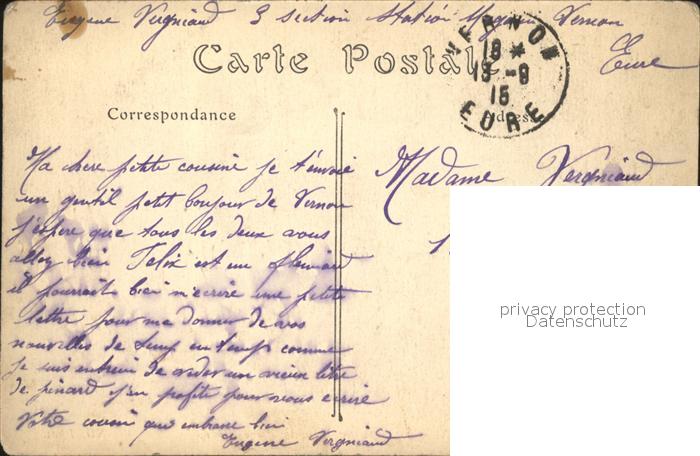 Eugene Vergniaud 3 section Station Magasin Vernon
Eure
Carte Postale
VERNON
18 *
13 -9
15
EURE
Correspondance
Adresse
Ma chere petite cousine je t'envoie
un gentil petit bonjour de Vernon
j'espere que tous les deux vous
allez bien Felix est un flemard
il pourrait bien m'ecrire une petite
lettre pour me donner de vos
nouvelles de temp en temps comme
je suis entrein de vider un vieux litre
de pinard j'en profite pour vous ecrire
Votre cousin qui embrasse bien
Eugene Vergniaud
Madame Vergniaud
privacy protection
Datenschutz